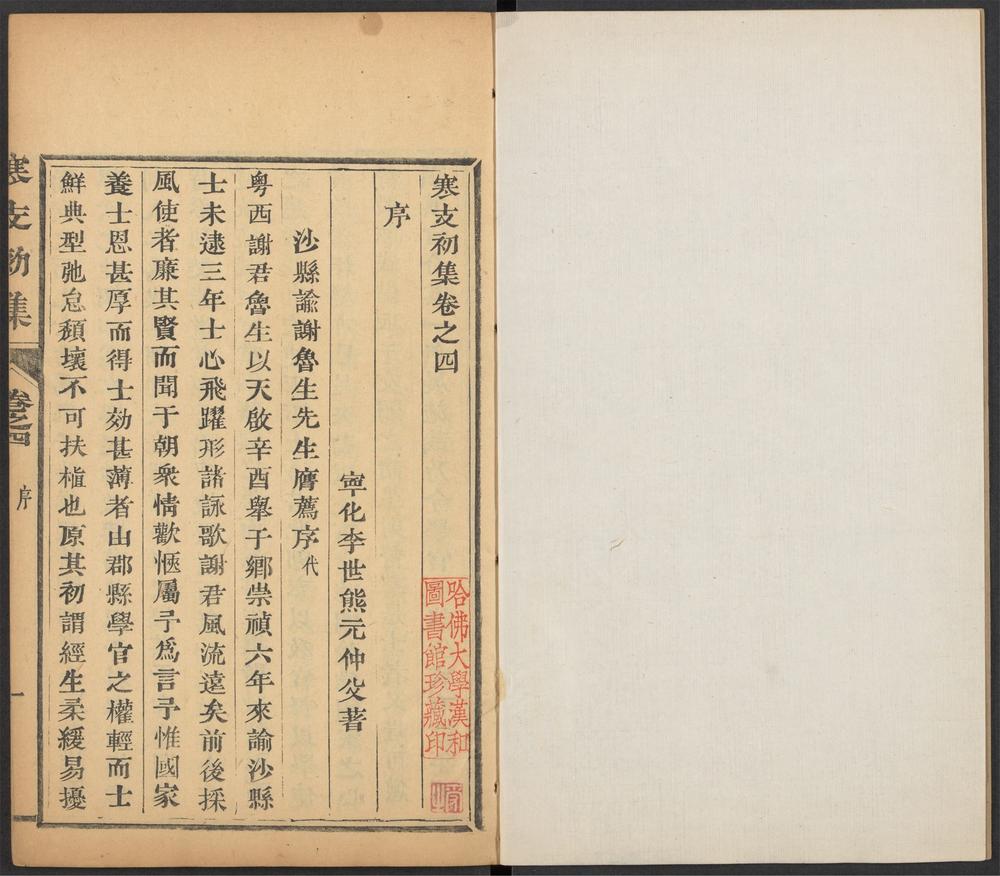 寒支初集卷之四
序
寧化李世熊元仲父著
沙縣諭謝魯生先生膺薦序代
粤西謝君魯生以天啟辛酉舉于鄉崇禎六年來諭沙縣
士未逮三年士心飛躍形諸詠歌謝君風流遠矣前後採
風使者廉其賢而聞于朝衆情歡愜屬予為言予惟國家
養士恩甚厚而得士効甚薄者由郡縣學官之權輕而士
鮮典型弛怠頹壞不可扶植也原其初謂經生柔緩易擾
寒支初集
卷之四
序
一
哈佛大學漢和
圖書館珍藏印